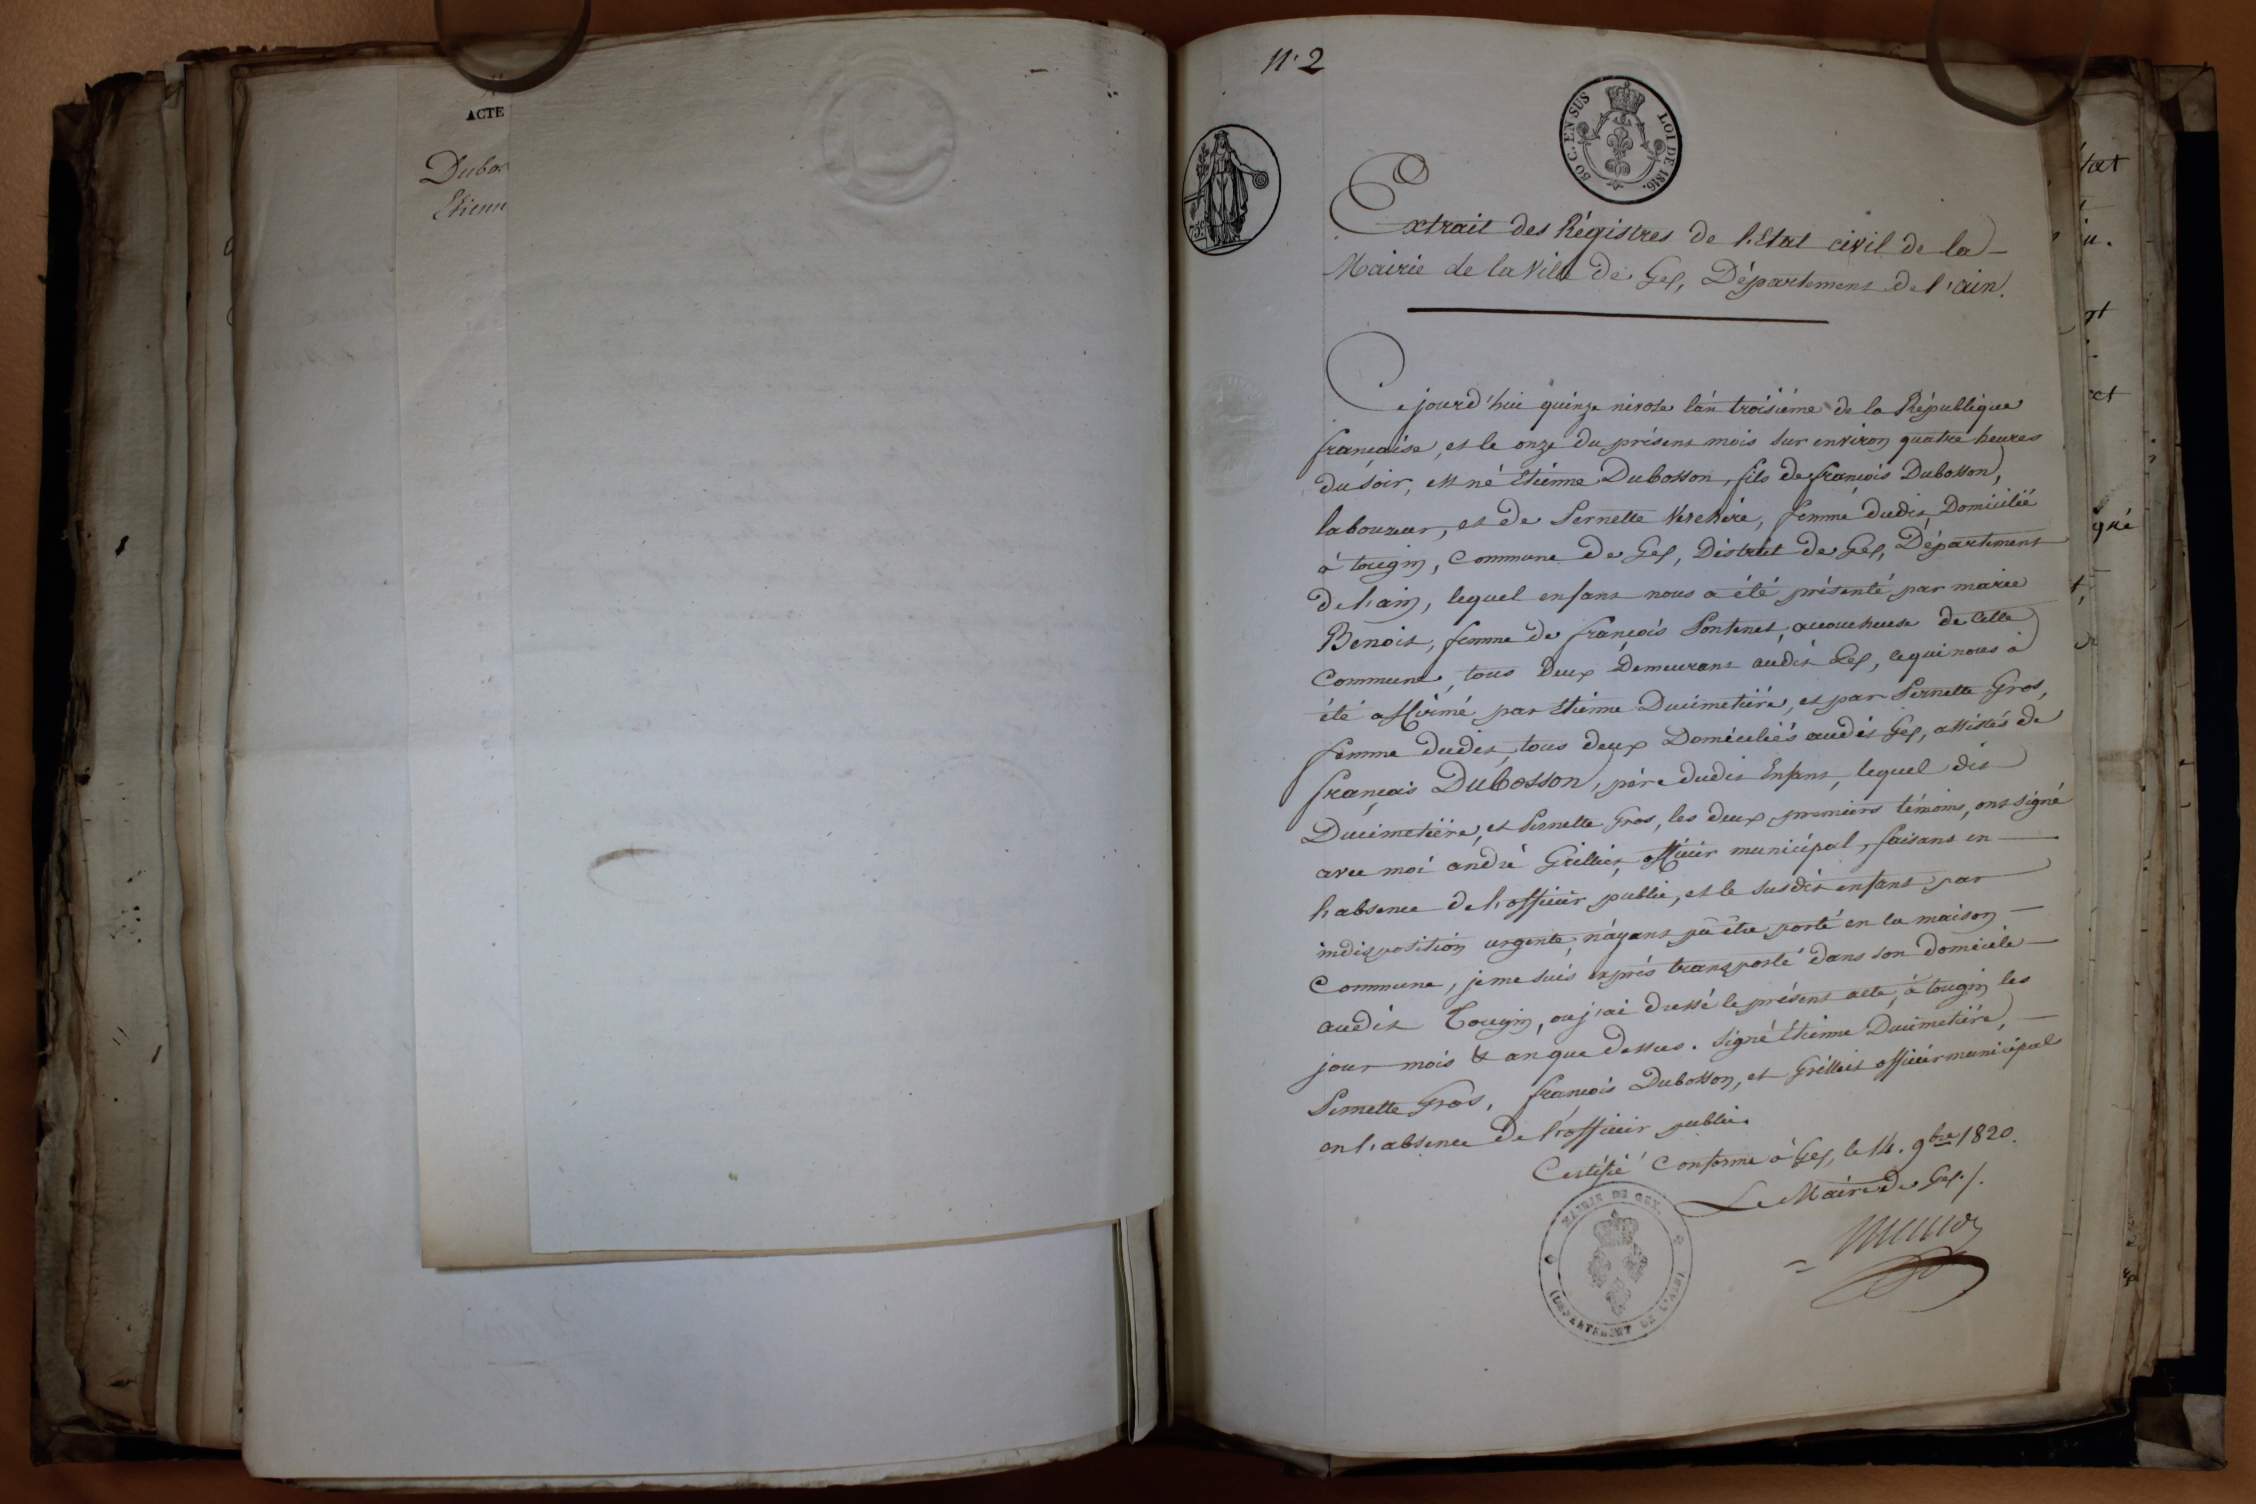 ACTE
Dubos
Etienn
N.º 2
50 C. EN SUS LOI DE 1816.
75
Extrait des Régistres de l'Etat civil de la
Mairie de la Ville de Gex, Département de l'ain.
Ce jourd'hui quinze nivose l'an troisième de la République
française, et le onze du présent mois sur environ quatre heures
du soir, est né Etienne Dubosson, fils de françois Dubosson,
laboureur, et de Pernette Verchère, femme dudit, Domicilié
à tougin, Commune de Gex, District de Gex, Département
de l'ain, lequel enfant nous a été présenté par marie
Benoit, femme de françois Pontenet, accoucheuse de Cette
Commune, tous deux Demeurant audit Gex, ce qui nous à
été affirmé par Etienne Ducimetière, et par Pernette Gros,
femme dudit, tous deux Domiciliés audit Gex, assistés de
français Dubosson, père dudit Enfant, lequel dit
Ducimetière, et Pernette Gros, les deux premiers témoins, ont signé
avec moi andré Grilliet, officier municipal, faisant en
l'absence de l'officier public, et le susdit enfant par
indisposition urgente, n'ayant pû être porté en la maison
Commune, je me suis exprès transporté dans son domicile
audit Tougin, ou j'ai dressé le présent acte, à tougin les
jour mois & an que dessus. Signé Etienne Ducimetière,
Pernette Gros, françois Dubosson, et Grilliet officier municipal
en l'absence de l'officier public.
Certifié Conforme à Gex, le 14. 9bre 1820.
Le Maire de Gex./.
MAIRIE DE GEX.
(DEPARTEMENT DE L'AIN)
tat
gné